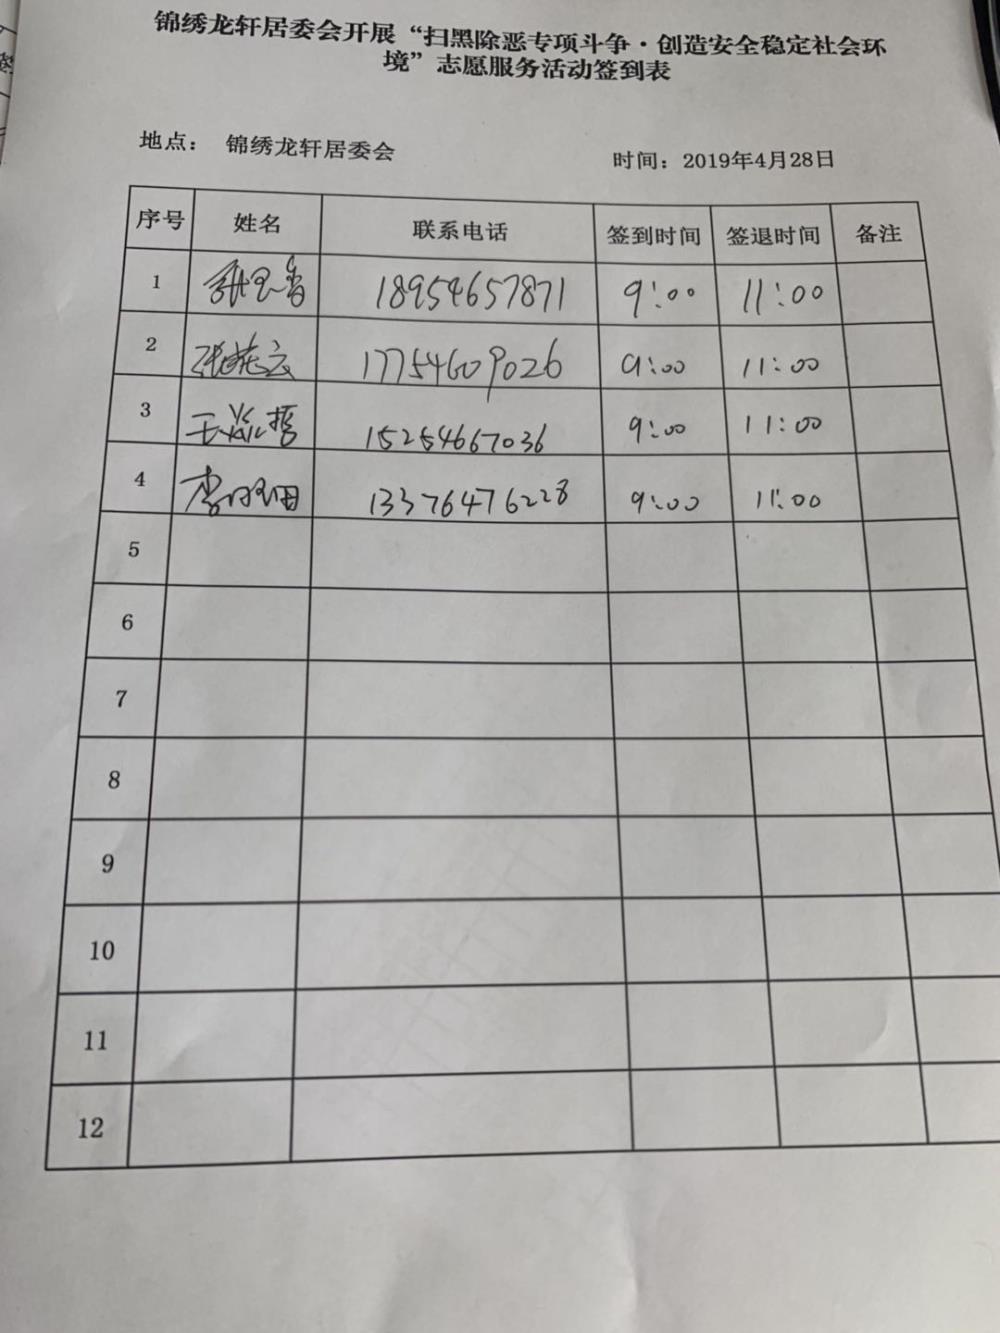 锦绣龙轩居委会开展“扫黑除恶专项斗争·创造安全稳定社会环
境”志愿服务活动签到表
地点： 锦绣龙轩居委会 时间：2019年4月28日
序号 姓名 联系电话 签到时间 签退时间 备注
1 18954657871 9:00 11:00
2 张燕云 17754609026 9:00 11:00
3 王 哲 15254667036 9:00 11:00
4 李 13376476228 9:00 11:00
5
6
7
8
9
10
11
12